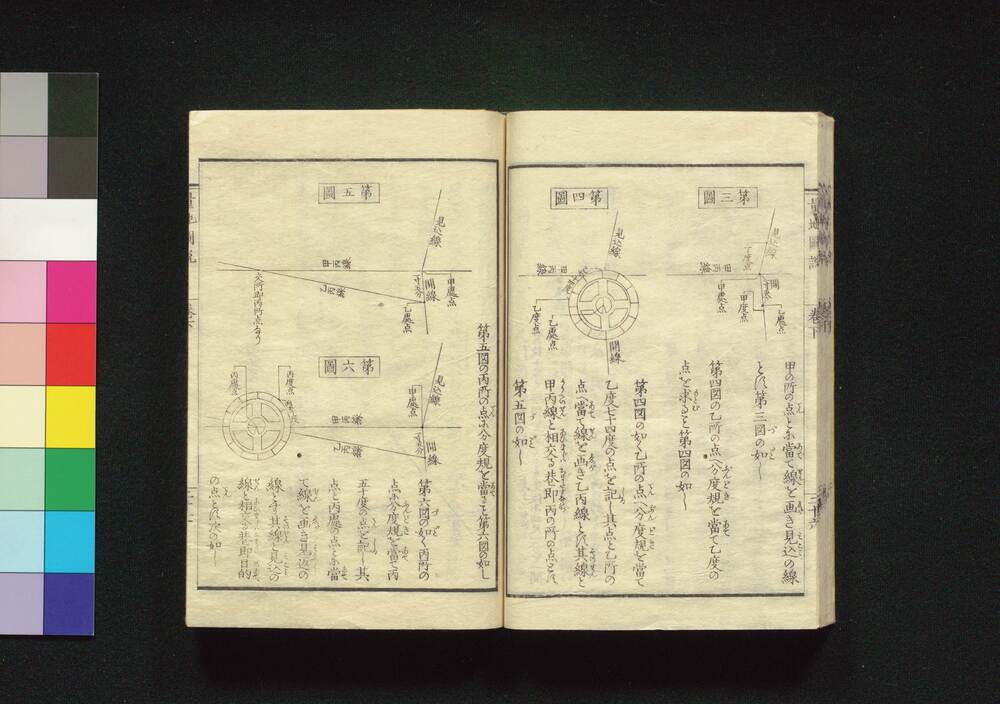 第三圖
見込線
甲丙線
丁度点
甲處点
甲度点
開線
乙處点
甲の所の点とに當て線を画き見込の線
とし第三図の如し
第四図の乙所の点へ分度規を當て乙度の
点を求ること第四図の如し
第四圖
見込線
甲丙線
乙度点
乙處点
開線
第四図の如く乙所の点へ分度規を當て
乙度七十四度の点を記し其点と乙所の
点へ當て線を画き乙丙線とし其線と
甲丙線と相交る巷即丙の所の点とし
第五図の如し
量地圖説
卷下
三十六
第五圖
見込線
甲丙線
乙丙線
開線
甲處点
乙處点
交所即丙所点なり
第五図の丙所の点に分度規を當ること第六図の如し
第六圖
見込線
甲處点
開線
甲丙線
乙丙線
丙度点
丙處点
第六図の如く丙所の
点に分度規を當て丙
五十度の点を記し其
点と丙處の点とに當
て線を画き見込の
線とす其線と見込の
線と相交る巷即目的
の点とし次の如し